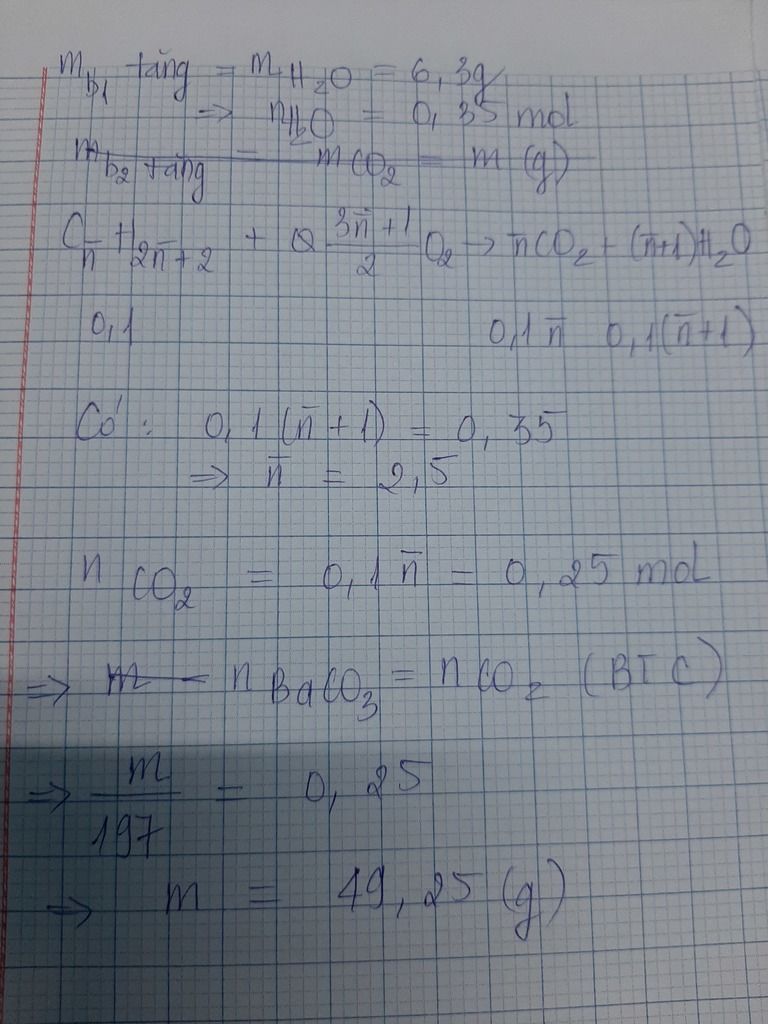 m b1 tăng = m H2O = 6,3g
=> nH2O = 0,35 mol
m b2 tăng = mCO2 = m (g)
C n̅ H 2n̅+2 + (3n̅+1)/2 O2 → n̅CO2 + (n̅+1)H2O
0,1 0,1 n̅ 0,1(n̅+1)
Có: 0,1(n̅+1) = 0,35
=> n̅ = 2,5
n CO2 = 0,1 n̅ = 0,25 mol
=> m = n BaCO3 = n CO2 (BTC)
=> m/197 = 0,25
=> m = 49,25 (g)